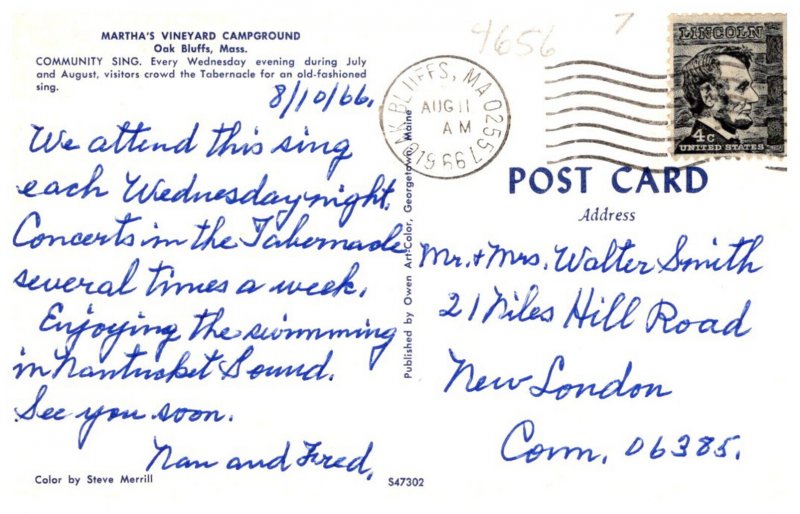 MARTHA'S VINEYARD CAMPGROUND
Oak Bluffs, Mass.
COMMUNITY SING. Every Wednesday evening during July
and August, visitors crowd the Tabernacle for an old-fashioned
sing.
8/10/66.
We attend this sing
each Wednesday night.
Concerts in the Tabernacle
several times a week.
Enjoying the swimming
in Nantucket Sound.
See you soon.
Nan and Fred.
Color by Steve Merrill
Published by Owen Art-Color, Georgetown, Maine
S47302
9656
7
OAK BLUFFS, MA 02557
AUG 11
AM
1966
LINCOLN
4c
UNITED STATES
POST CARD
Address
Mr. + Mrs. Walter Smith
21 Niles Hill Road
New London
Conn. 06385.